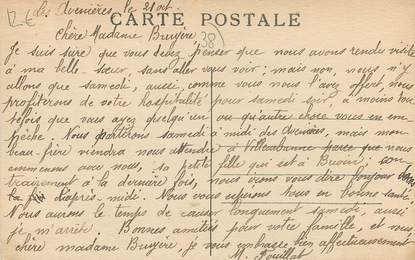 2€
des Avenières, le 21 oct.
CARTE POSTALE
38
Chère Madame Bruyère
Je suis sûre que vous devez penser que nous avons rendu visite
à ma belle-sœur, sans aller vous voir; mais non, nous n'y
allons que samedi, aussi, comme vous nous l'avez offert, nous
profiterons de votre hospitalité pour samedi soir, à moins tou-
tefois que vous ayez quelqu'un ou qu'autre chose vous en em-
pêche. Nous partirons samedi à midi des Avenières, mais mon
beau-frère viendra nous attendre à Villeurbanne parce que nous
emmenons avec nous, sa petite fille qui est à Buvin; con-
trairement à la dernière fois, nous irons vous dire bonjour
la d'après-midi. Nous vous espérons tous en bonne santé.
Nous aurons le temps de causer longuement samedi, aussi
je m'arrête. Bonnes amitiés pour votre famille, et vous,
chère madame Bruyère, je vous embrasse bien affectueusement
M. Pouillat